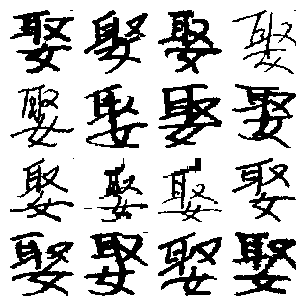 娶娶娶娶
娶娶娶娶
娶娶娶娶
娶娶娶娶